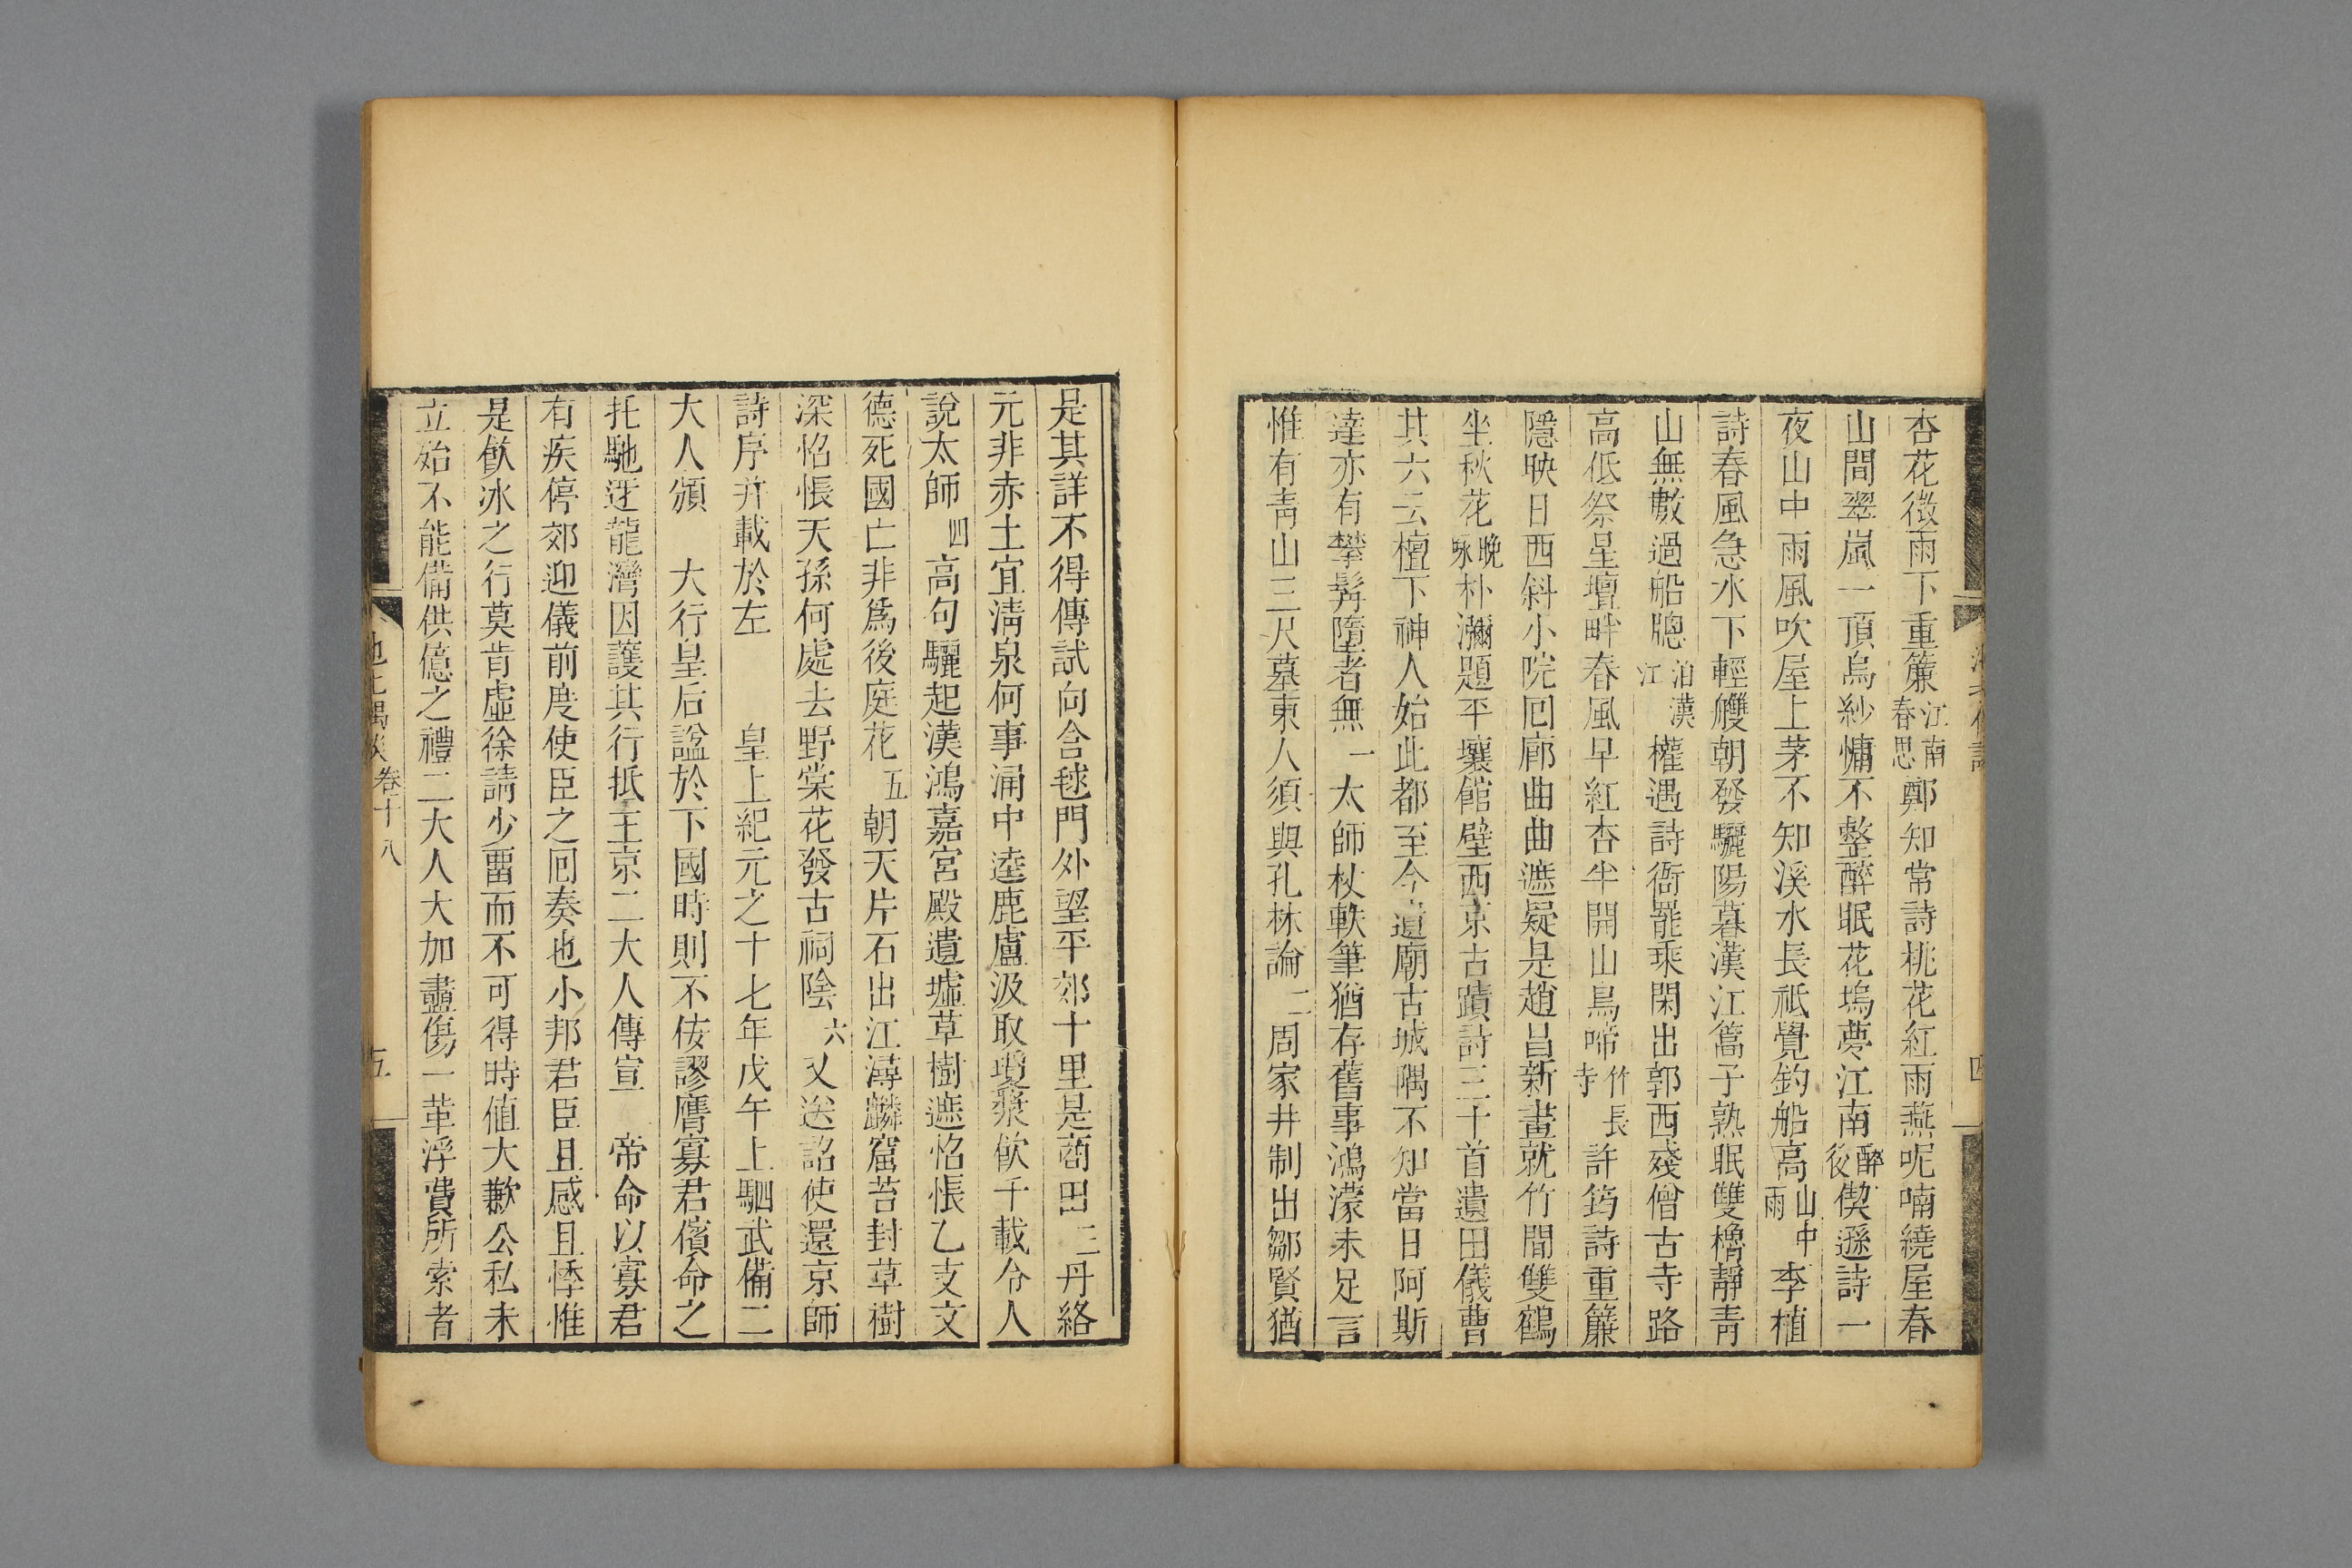 杏花微雨下重簾江南春思鄭知常詩桃花紅雨燕呢喃繞屋春
山間翠嵐一頂烏紗慵不整醉眠花塢夢江南醉後偰遜詩一
夜山中雨風吹屋上茅不知溪水長祗覺釣船高山中雨李植
詩春風急水下輕艭朝發驪陽暮漢江篙子熟眠雙櫓靜靑
山無數過船牕泊漢江權遇詩衙罷乘閑出郭西殘僧古寺路
高低祭星壇畔春風早紅杏半開山鳥啼竹長寺許筠詩重簾
隱映日西斜小院囘廊曲曲遮疑是趙昌新畫就竹間雙鶴
坐秋花晚咏朴瀰題平壤館壁西京古蹟詩三十首遺田儀曹
其六云檀下神人始此都至今遺廟古城隅不知當日阿斯
達亦有攀髯墮者無一太師杖軼筆猶存舊事鴻濛未足言
惟有靑山三尺墓東人須與孔林論二周家井制出鄒賢猶
是其詳不得傳試向含毬門外望平郊十里是商田三丹絡
元非赤土宜淸泉何事涌中逵鹿盧汲取瓊漿飮千載令人
說太師四高句驪起漢鴻嘉宮殿遺墟草樹遮怊悵乙支文
德死國亡非爲後庭花五朝天片石出江潯麟窟苔封草樹
深怊悵天孫何處去野棠花發古祠陰六又送詔使還京師
詩序幷載於左 皇上紀元之十七年戊午上駟武備二
大人頒 大行皇后諡於下國時則不佞謬膺寡君儐命之
托馳迓龍灣因護其行抵王京二大人傳宣 帝命以寡君
有疾停郊迎儀前度使臣之囘奏也小邦君臣且感且悸惟
是飮冰之行莫肯虛徐請少畱而不可得時値大歉公私未
立殆不能備供億之禮二大人大加衋傷一革浮費所索者
卷十八
五